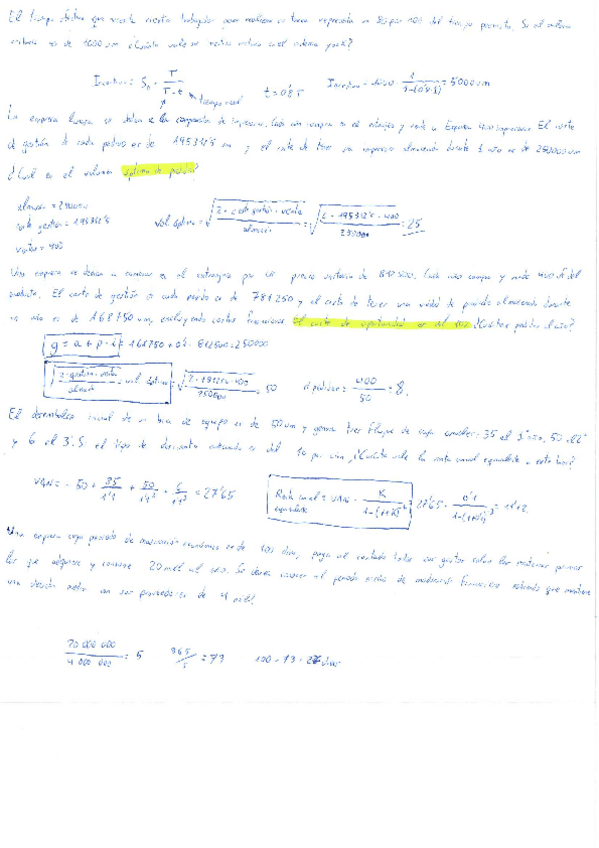 El tiempo óptimo que necesita cierto trabajador para realizar su tarea representa un 80 por 100 del tiempo previsto. Si el salario
ordinario es de 1000 um ¿Cuánto vale en
Incentivo: S₀ · T/(T-t) tiempo real t = 0'8T Incentivo = 1000 · 1/(1-(0'8·1)) = 5000 um
Una empresa se dedica a la compraventa de impresoras. Cada año compra en el extranjero y vende a España 400 impresoras. El coste
de gestión de cada pedido es de 195312'5 um y el coste de tener una impresora almacenada durante 1 año es de 250000 um
¿Cuál es el volumen óptimo de pedido?
almacén = 250000
coste gestión = 195312'5
ventas = 400
vol. óptimo = √(2 · coste gestión · venta / almacén) = √(2 · 195312'5 · 400 / 250000) = 25
Una empresa se dedica a comprar en el extranjero por un precio unitario de 812500. Cada año compra y vende 400 del
producto. El coste de gestión de cada pedido es de 781250 y el coste de tener una unidad de producto almacenada durante
un año es de 168750 um, excluyendo costes financieros. El coste de oportunidad es del 10% ¿Cuántos pedidos al año?
g = a + p · i = 168750 + 0'1 · 812500 = 250000
√(2 · gestión · venta / almacén) vol. óptimo = √(2 · 781250 · 400 / 250000) = 50 nº pedidos = 400/50 = 8.
El desembolso inicial de un bien de equipo es de 50 um y genera tres flujos de caja anuales: 35 el 1º año, 50 el 2º
y 6 el 3º. Si el tipo de descuento adecuado es del 10 por cien, ¿Cuánto vale la renta anual equivalente a este bien?
VAN = -50 + 35/1'1 + 50/1'1² + 6/1'1³ = 27'65 Renta anual equivalente = VAN · K/(1-(1+K)
Una empresa cuyo periodo de maduración económico es de 100 días, paga al contado todos sus gastos salvo las materias primas
las que adquiere y consume 20 mill al año. Se desea conocer el periodo medio de maduración financiero sabiendo que mantiene
una deuda media con sus proveedores de 4 mill.
20 000 000/4 000 000 = 5 365/5 = 73 100 - 73 = 27 días